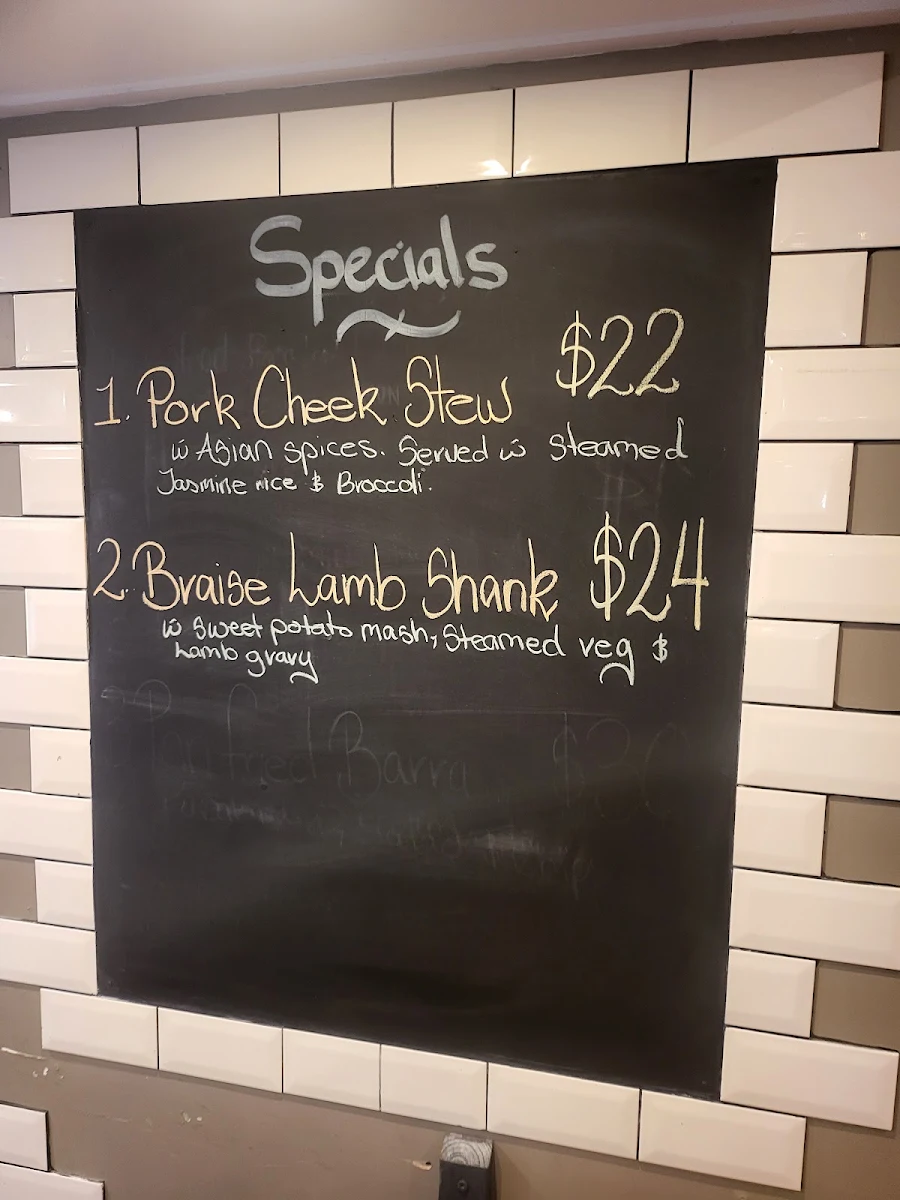 Specials
1. Pork Cheek Stew $22
w Asian spices. Served w Steamed
Jasmine rice & Broccoli.
2. Braise Lamb Shank $24
w Sweet potato mash, Steamed veg &
Lamb gravy
Pan fried Barra $30